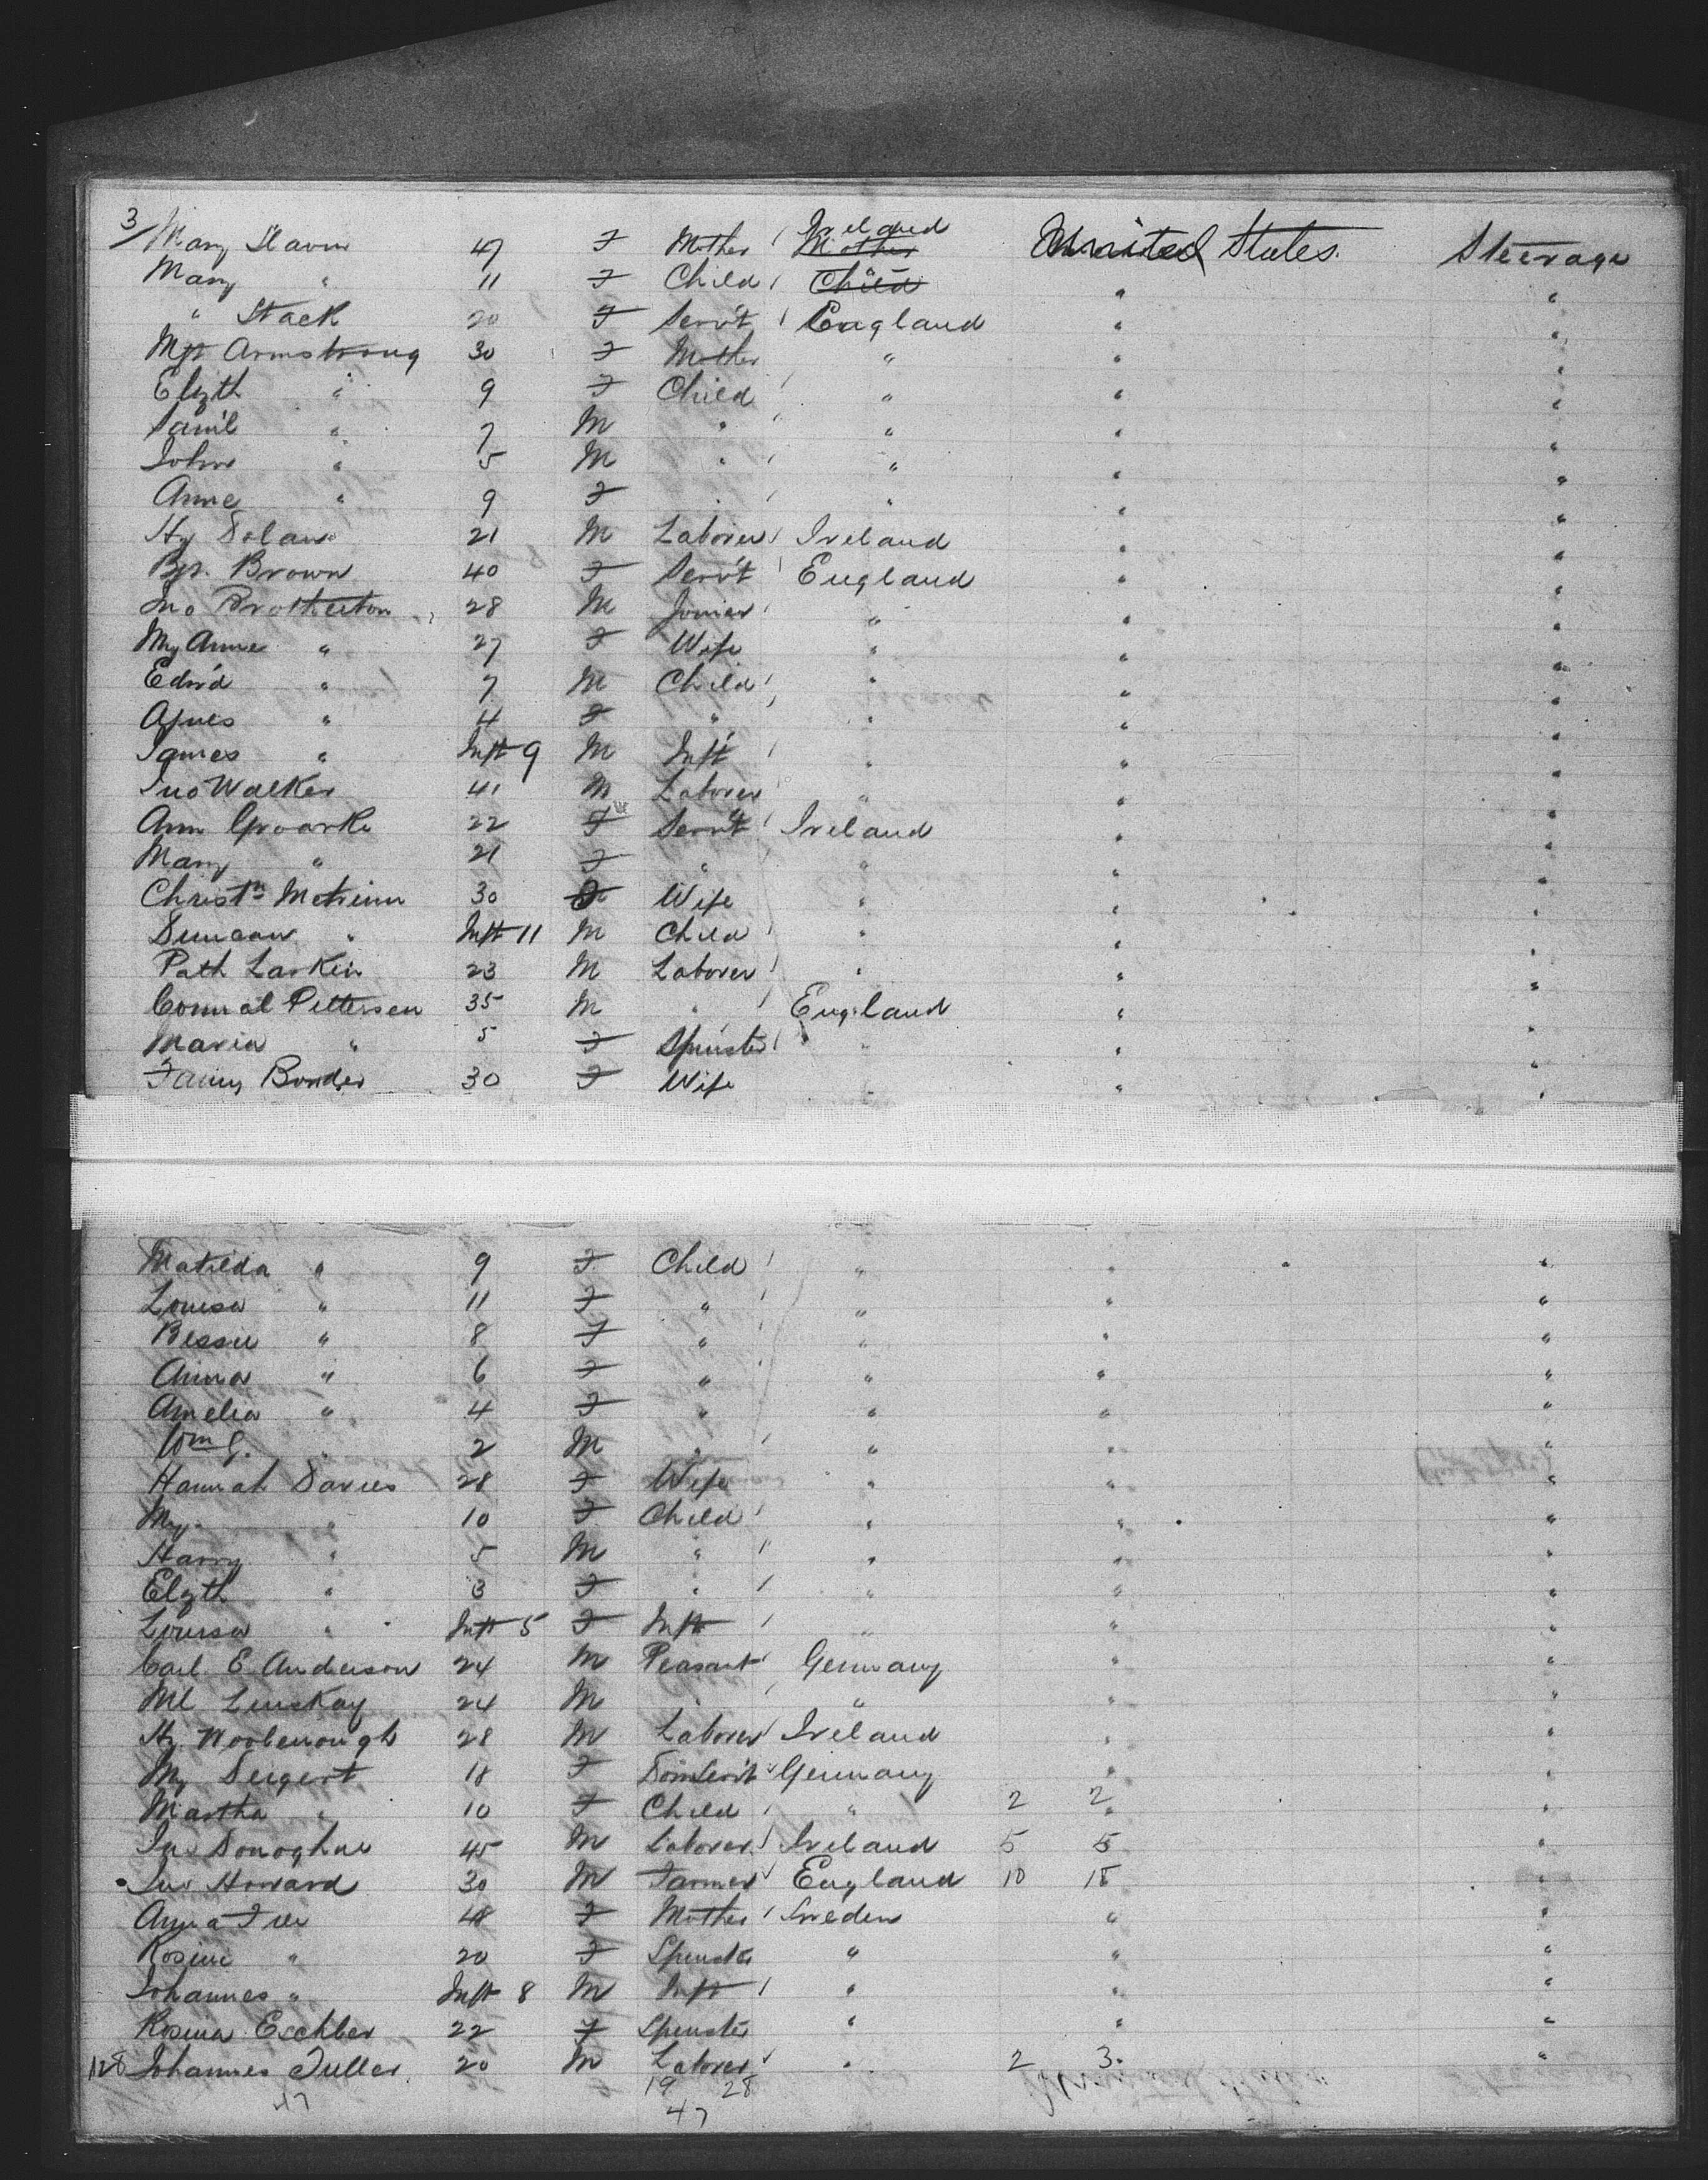 3/ Mary Slavin 47 F Mother / Ireland Mother United States Steerage
Mary " 11 F Child / " Child " "
" Stack 20 F Serv't / England " "
Mgt Armstrong 30 F Mother " " "
Elizth " 9 F Child / " " "
Sam'l " 7 M " / " " "
John " 5 M " / " " "
Anne " 9 F " / " " "
Hy Dolan 21 M Laborer / Ireland " "
Bgt. Brown 40 F Serv't / England " "
Jno Brotherton 28 M Joiner / " " "
My Anne " 27 F Wife " " "
Edw'd " 7 M Child / " " "
Agnes " 4 F " / " " "
James " Inft 9 M Inft / " " "
Jno Walker 41 M Laborer " " "
Ann Groarke 22 F Serv't / Ireland " "
Mary " 21 F " " " "
Christn 30 F Wife " " "
Duncan " Inft 11 M Child / " " "
Patk Larkin 23 M Laborer / " " "
Pettersen 35 M " / England " "
Maria " 5 F Spinster / " " "
Fanny 30 F Wife " " "
Matilda " 9 F Child / " " "
Louisa " 11 F " / " " "
Bessie " 8 F " / " " "
Anna " 6 F " / " " "
Amelia " 4 F " / " " "
Wm G. " 2 M " / " " "
Hannah Davies 28 F Wife " " "
My " 10 F Child / " " "
Harry " 5 M " / " " "
Elizth " 3 F " / " " "
Louisa " Inft 5 F Inft / " " "
Carl E. Anderson 24 M Peasant / Germany " "
Ml Linskay 24 M " / " " "
Hy. Woolenough 28 M Laborer / Ireland " "
My Seigert 18 F Dom Serv't Germany " "
Martha " 10 F Child / " 2 2 " "
Jno Donoghue 45 M Laborer / Ireland 5 5 "
Jno Howard 30 M Farmer England 10 15 "
Anna 48 F Mother / Sweden " "
Rosine " 20 F Spinster " " "
Johannes " Inft 8 M Inft / " " "
Rosina Eschber 22 F Spinster " " "
128 Johannes Tuller 20 M Laborer " 2 3 " "
19 28
47 47